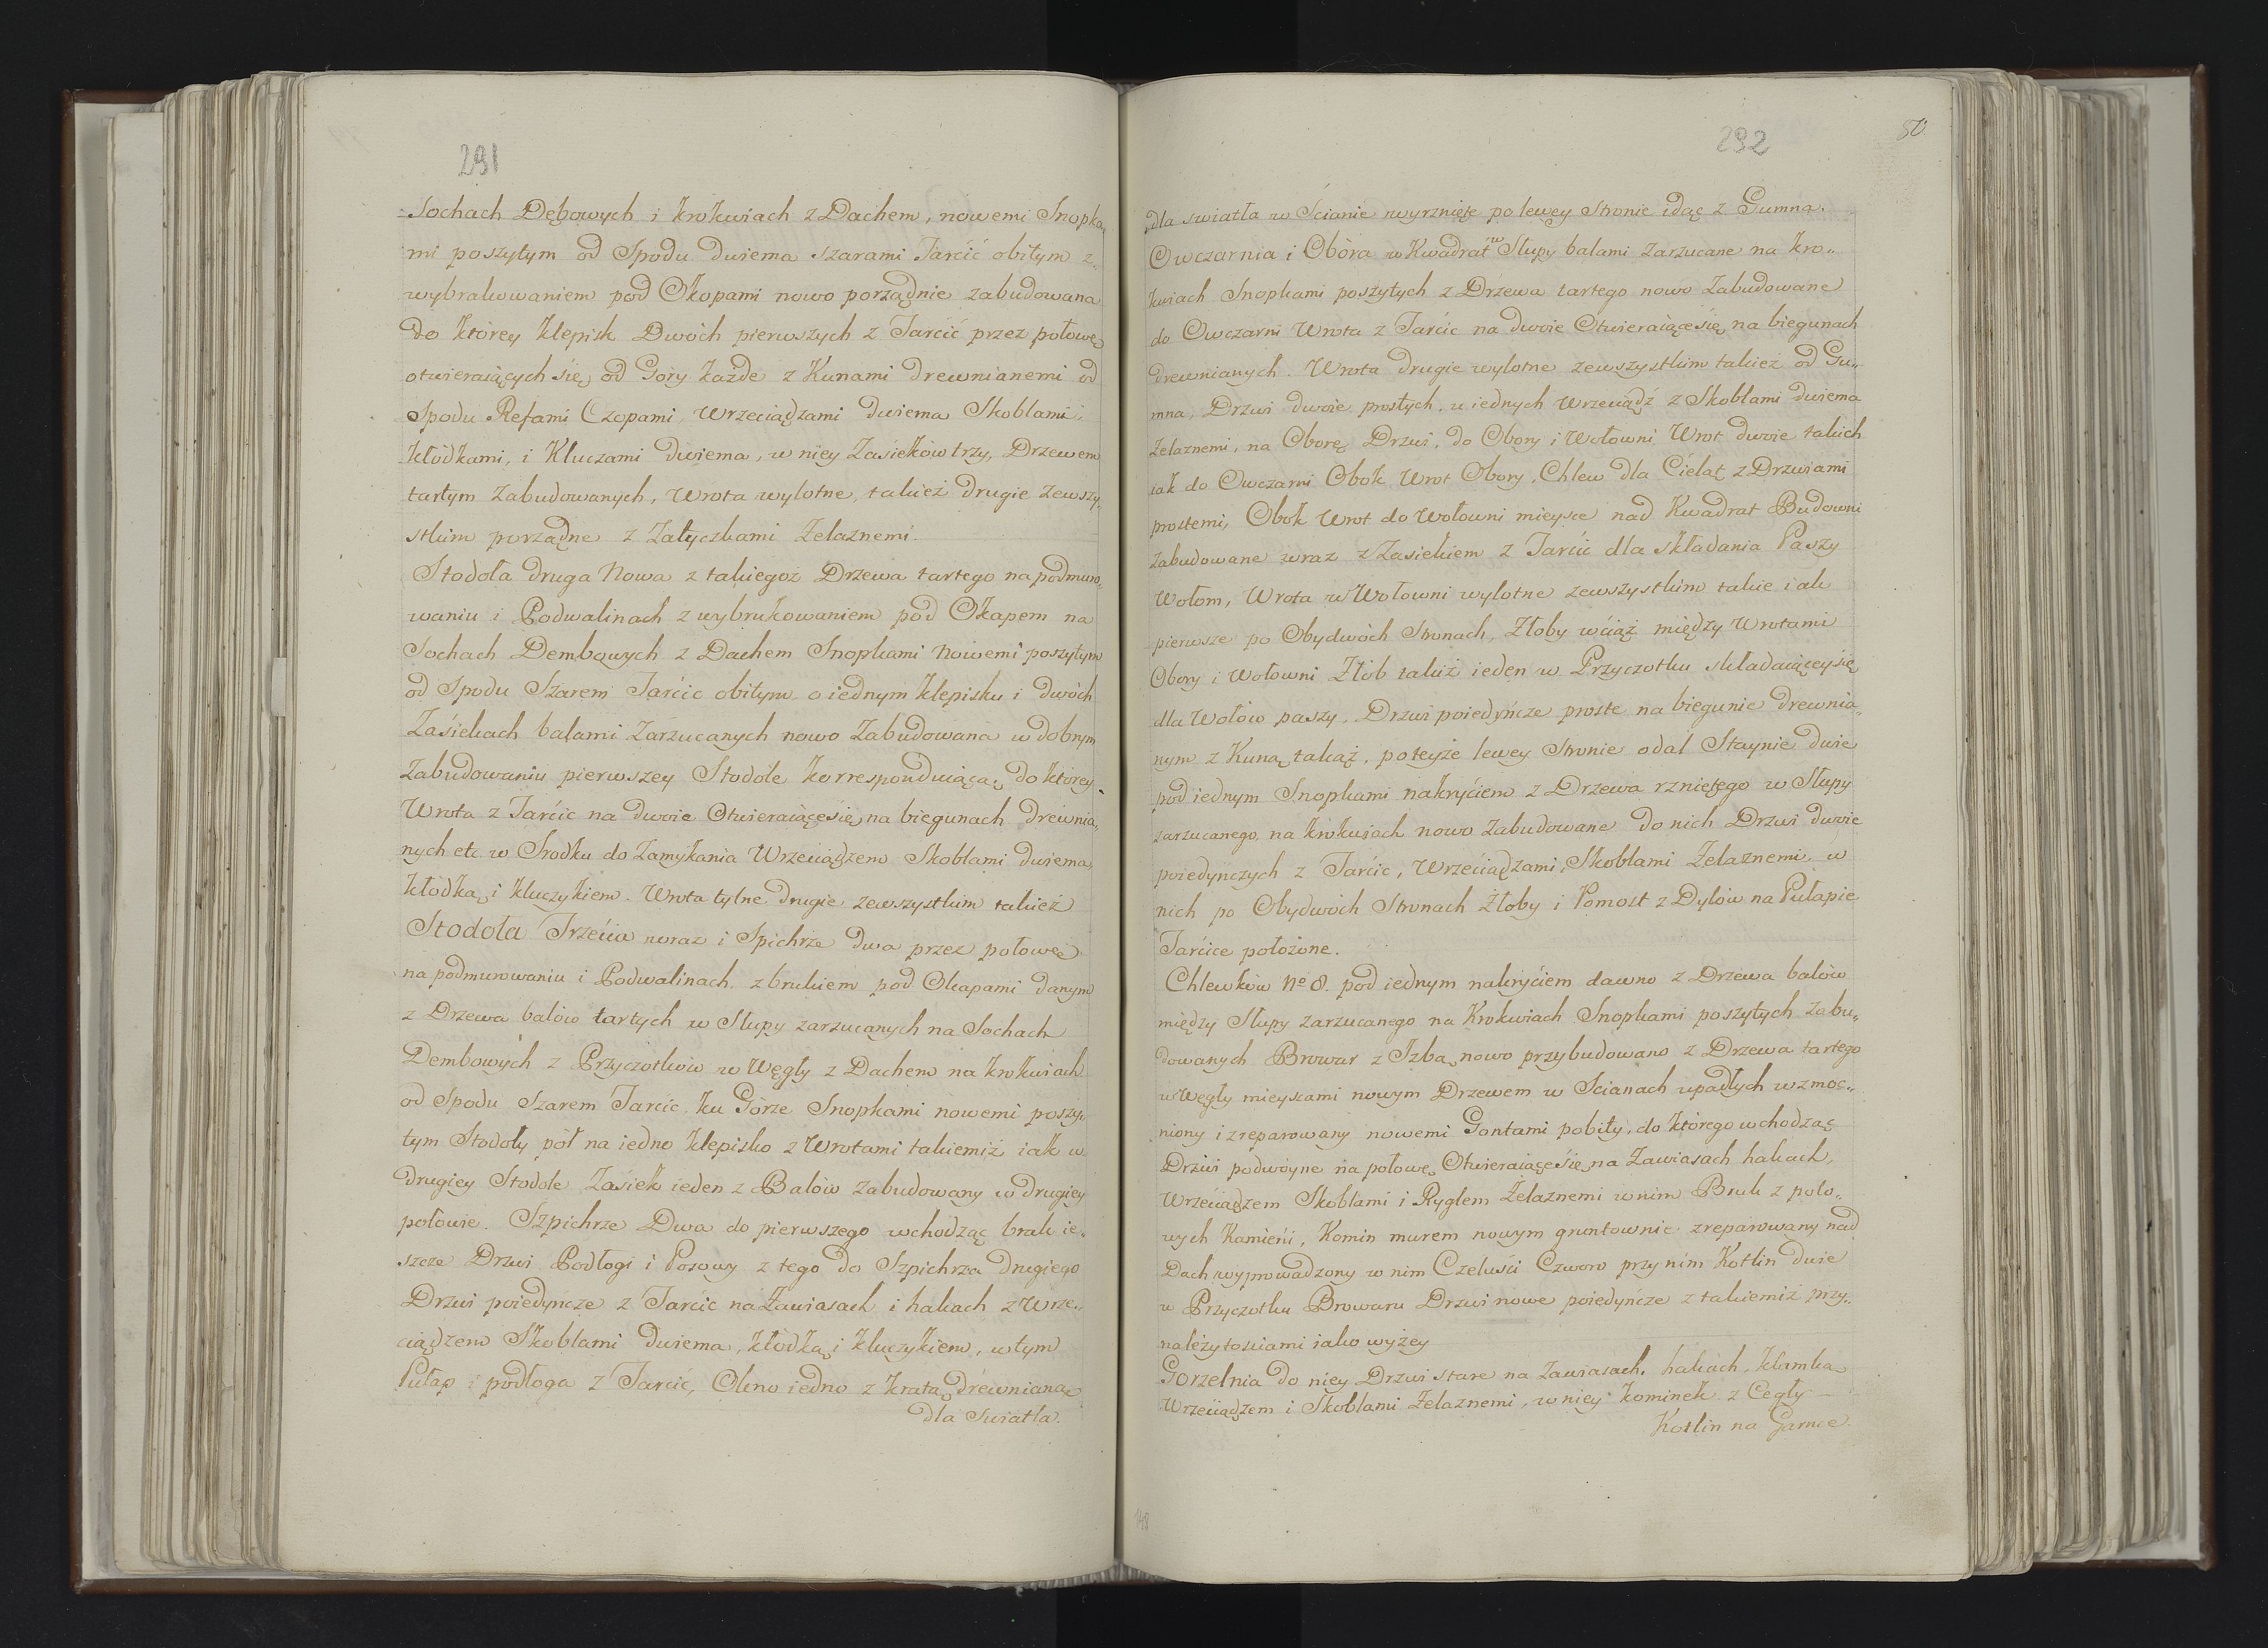 291
Sochach Dębowych i krokwiach z Dachem, nowemi Snopka„
mi poszytym od Spodu dwiema szarami Tarcić obitym z„
wybrukowaniem pod Okopami nowo porządnie zabudowana
do którey klepisk Dwóch pierwszych z Tarcić przez połowę
otwieraiących się, od Góry każde z Kunami drewnianemi od
Spodu Refami Czopami, Wrzeciądzami dwiema Skoblami,
kłódkami, i Kluczami dwiema, w niey Zasieków trzy, Drzewem
tartym Zabudowanych, Wrota wylotne, takież drugie zewszy„
stkim porządne z Zatyczkami Żelaznemi.
Stodoła druga Nowa z takiegoż Drzewa tartego na podmuro„
waniu i Podwalinach z wybrukowaniem pod Okapem na
Sochach Dembowych z Dachem Snopkami Nowemi poszytym
od Spodu Szarem Tarćic obitym o iednym klepisku i dwóch
Zaśiekach balami Zarzucanych nowo Zabudowana w dobnym
Zabudowaniu pierwszey Stodole korresponduiąca, do którey
Wrota z Tarćic na dwoie Otwieraiące się na biegunach drewnia„
nych etc. w Srodku do Zamykania Wrzeciądzem Skoblami dwiema
kłódką i kluczykiem. Wrota tylne drugie zewszystkim takież
Stodoła Trzecia wraz i Spichrze dwa przez połowę
na podmurowaniu i Podwalinach z brukiem pod Okapami danym
z Drzewa balów tartych w Słupy zarzucanych na Sochach
Dembowych z Przyczołków w Węgły z Dachem na krokwiach
od Spodu Szarem Tarcic, ku Górze Snopkami nowemi poszy„
tym Stodoły pół na iedno klepisko z Wrotami takiemiż iak w
drugiey Stodole Zasiek ieden z Balów zabudowany w drugiey
połowie. Szpichrze Dwa do pierwszego wchodząc brak ie„
szcze Drzwi Podłogi i Posowy z tego do Szpichrza drugiego
Drzwi poiedyncze z Tarcic na Zawiasach i hakach z Wrze„
ciądzem Skoblami dwiema, kłódką i kluczykiem, w tym
Pułap i podłoga z Tarcic, Okno iedno z kratą drewnianą
dla Swiatła.
292
50
dla swiatła w Ścianie wyrznięte po lewey stronie idąc z Gumna.
Owczarnia i Obora w Kwadrat w Słupy balami zarzucane na kro„
kwiach Snopkami poszytych z Drzewa tartego nowo Zabudowane
do Owczarni Wrota z Tarćic na dwoie Otwieraiące się na biegunach
drewnianych. Wrota drugie wylotne zewszystkim takież od Gu„
mna, Drzwi dwoie prostych, u iednych Wrzeciądź z Skoblami dwiema
Żelaznemi, na Oborę Drzwi, do Obory i Wołowni Wrot dwoie takich
iak do Owczarni Obok Wrot Obory, Chlew dla Cieląt z Drzwiami
prostemi, Obok Wrot do Wołowni mieysce nad Kwadrat Budowni
Zabudowane wraz z Zasiekiem z Tarćic dla składania Paszy
Wołom, Wrota w Wołowni wylotne zewszystkim takie iak
pierwsze po Obydwóch Stronach, Złoby wciąż między Wrotami
Obory i Wołowni Złób takiż ieden w Przyczołku składaiącey się
dla Wołów paszy, Drzwi poiedyncze proste na biegunie drewnia„
nym z Kuną takąż, po teyże lewey Stronie odal Staynie dwie
pod iednym Snopkami nakryciem z Drzewa rzniętego w Słupy
zarzucanego, na krokwiach nowo Zabudowane do nich Drzwi dwoie
poiedynczych z Tarćic, Wrzeciądzami, Skoblami Żelaznemi, w
nich po Obydwóch Stronach Żłoby i Pomost z Dylów na Pułapie
Tarćice położone.
Chlewków No 8. pod iednym nakryciem dawno z Drzewa balów
między Słupy zarzucanego na Krokwiach Snopkami poszytych Zabu„
dowanych Browar z Izbą nowo przybudowano z Drzewa tartego
w Węgły mieyscami nowym Drzewem w Scianach upadłych wzmoc„
niony i zreparowany nowemi Gontami pobity, do którego wchodząc
Drzwi podwóyne na połowę Otwieraiące się na Zawiasach hakach,
Wrzeciądzem Skoblami i Ryglem Żelaznemi w nim Bruk z polo„
wych Kamieni, Komin murem nowym gruntownie zreparowany nad
Dach wyprowadzony w nim Czeluści Czworo przy nim Kotlin dwie
w Przyczołku Browaru Drzwi nowe poiedyńcze z takiemiż przy„
należytosciami iako wyżey
Gorzelnia do niey Drzwi stare na Zawiasach, hakach, klamką
Wrzeciądzem i Skoblami Żelaznemi, w niey kominek z Cegły
Kotlin na Garnce.
148